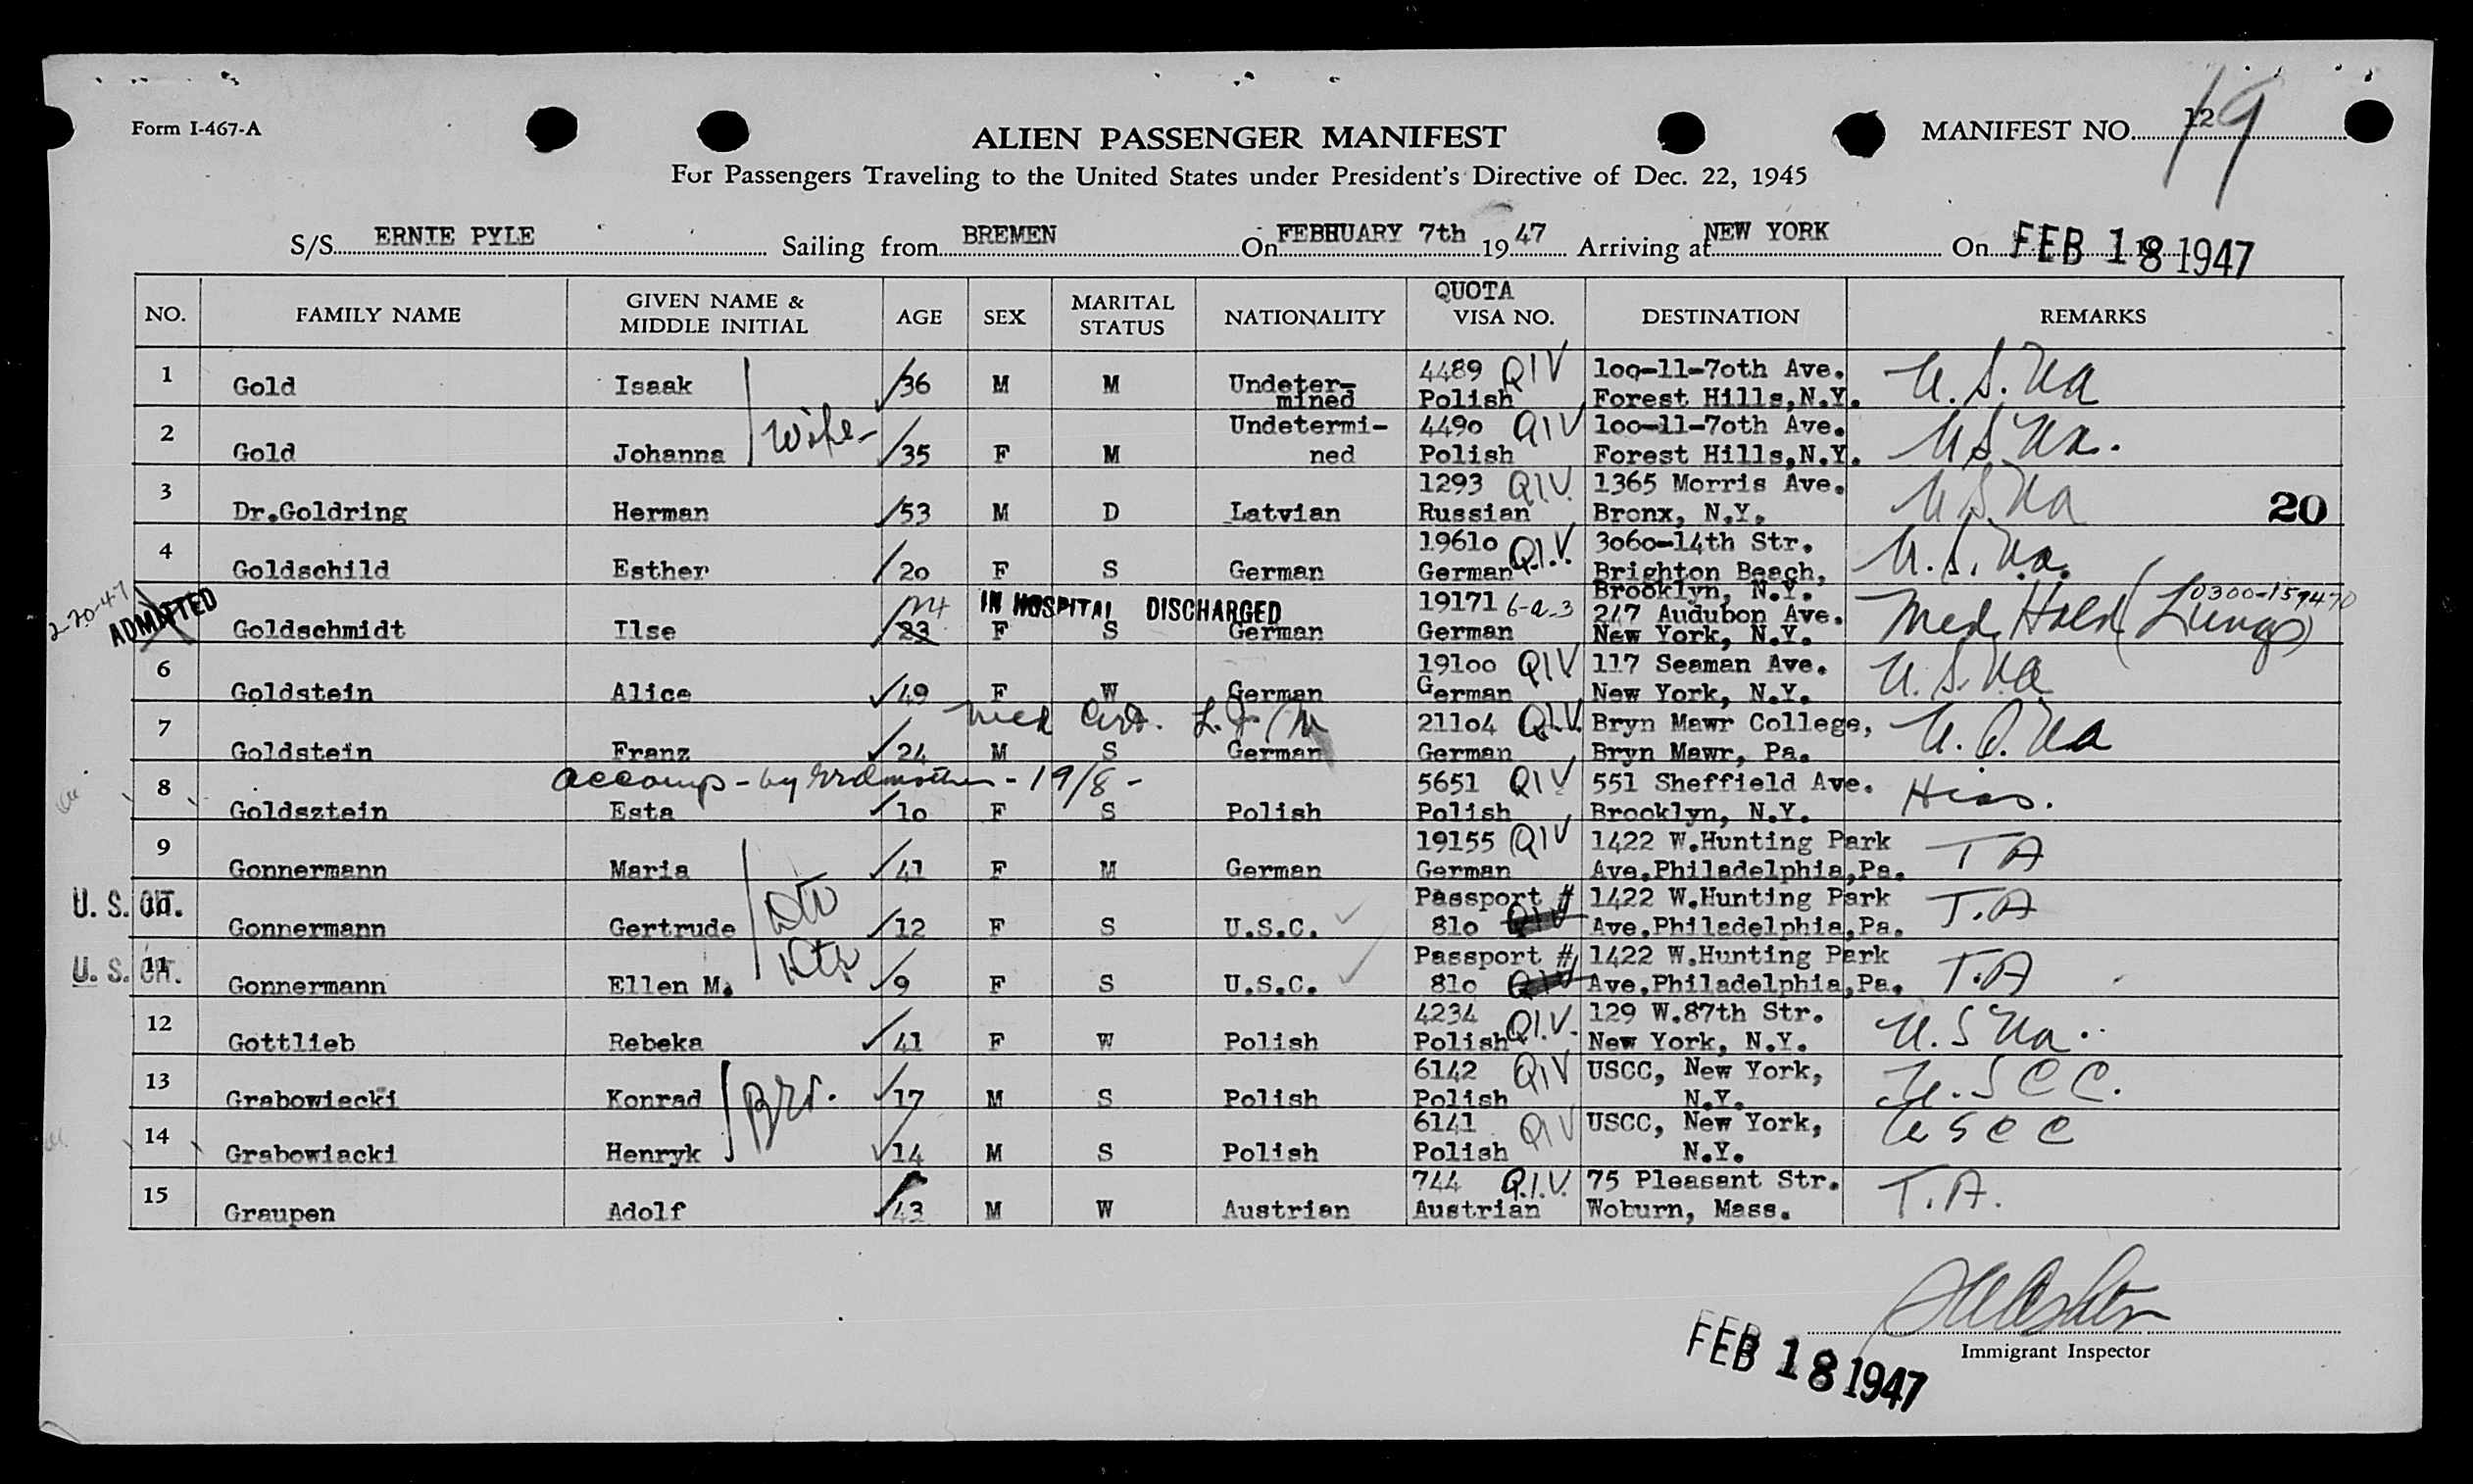 Form I-467-A
ALIEN PASSENGER MANIFEST
MANIFEST NO. 12 19
For Passengers Traveling to the United States under President's Directive of Dec. 22, 1945
S/S ERNIE PYLE Sailing from BREMEN On FEBRUARY 7th 19 47 Arriving at NEW YORK On FEB 18 1947
NO. FAMILY NAME GIVEN NAME & MIDDLE INITIAL AGE SEX MARITAL STATUS NATIONALITY QUOTA VISA NO. DESTINATION REMARKS
1 Gold Isaak 36 M M Undeter-mined 4489 QIV Polish 100-11-70th Ave. Forest Hills,N.Y. U.S.Na
2 Gold Johanna Wife 35 F M Undetermi-ned 4490 QIV Polish 100-11-70th Ave. Forest Hills,N.Y. U.S.Na.
3 Dr.Goldring Herman 53 M D Latvian 1293 QIV. Russian 1365 Morris Ave. Bronx, N.Y. U.S.Na 20
4 Goldschild Esther 20 F S German 19610 Q.I.V. German 3060-14th Str. Brighton Beach, Brooklyn, N.Y. U.S.Na.
2-20-47 ADMITTED Goldschmidt Ilse 23 24 F S IN HOSPITAL DISCHARGED German 19171 6-a-3 German 247 Audubon Ave. New York, N.Y. Med. Held (Lungs) 0300-159470
6 Goldstein Alice 49 F W German 19100 QIV German 117 Seaman Ave. New York, N.Y. U.S.Na
Med Cert.
7 Goldstein Franz 24 M S German 21104 Q.I.V. German Bryn Mawr College, Bryn Mawr, Pa. U.S.Na
accomp - by Grdmother - 19/8 -
8 Goldsztein Esta 10 F S Polish 5651 QIV Polish 551 Sheffield Ave. Brooklyn, N.Y. Hias.
9 Gonnermann Maria 41 F M German 19155 QIV German 1422 W.Hunting Park Ave.Philadelphia,Pa. T A
U. S. CIT. 10 Gonnermann Gertrude Dtr 12 F S U.S.C. Passport # 810 QIV 1422 W.Hunting Park Ave.Philadelphia,Pa. T.A
U. S. CIT. 11 Gonnermann Ellen M. Dtr 9 F S U.S.C. Passport # 810 QIV 1422 W.Hunting Park Ave.Philadelphia,Pa. T.A
12 Gottlieb Rebeka 41 F W Polish 4234 Q.I.V. Polish 129 W.87th Str. New York, N.Y. U.S Na.
13 Grabowiecki Konrad Bro. 17 M S Polish 6142 QIV Polish USCC, New York, N.Y. U.S C C.
14 Grabowiacki Henryk 14 M S Polish 6141 QIV Polish USCC, New York, N.Y. U S C C
15 Graupen Adolf 43 M W Austrian 744 Q.I.V. Austrian 75 Pleasant Str. Woburn, Mass. T.A.
Immigrant Inspector
FEB 18 1947